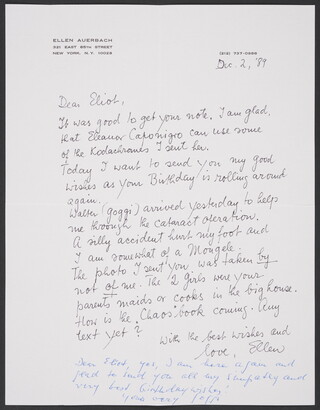 ELLEN AUERBACH
321 EAST 85TH STREET
NEW YORK, N.Y. 10028
(212) 737-0988
Dec. 2, '89
Dear Eliot,
It was good to get your note. I am glad,
that Eleanor Caponigro can use some
of the Kodachromes I sent her.
Today I want to send you my good
wishes as your Birthday is rolling around
again.
Walter (goggi) arrived yesterday to help
me through the cataract operation.
A silly accident hurt my foot and
I am somewhat of a
The photo I sent you, was taken by
not of me. The 2 girls were your
parents maids or cooks in the big house.
How is the "Chaos" book coming. Any
text yet?
With the best wishes and
love, Ellen
Dear Eliot, yes, I am here again and
glad to send you all my sympathy and
very best birthday wishes
Yours very